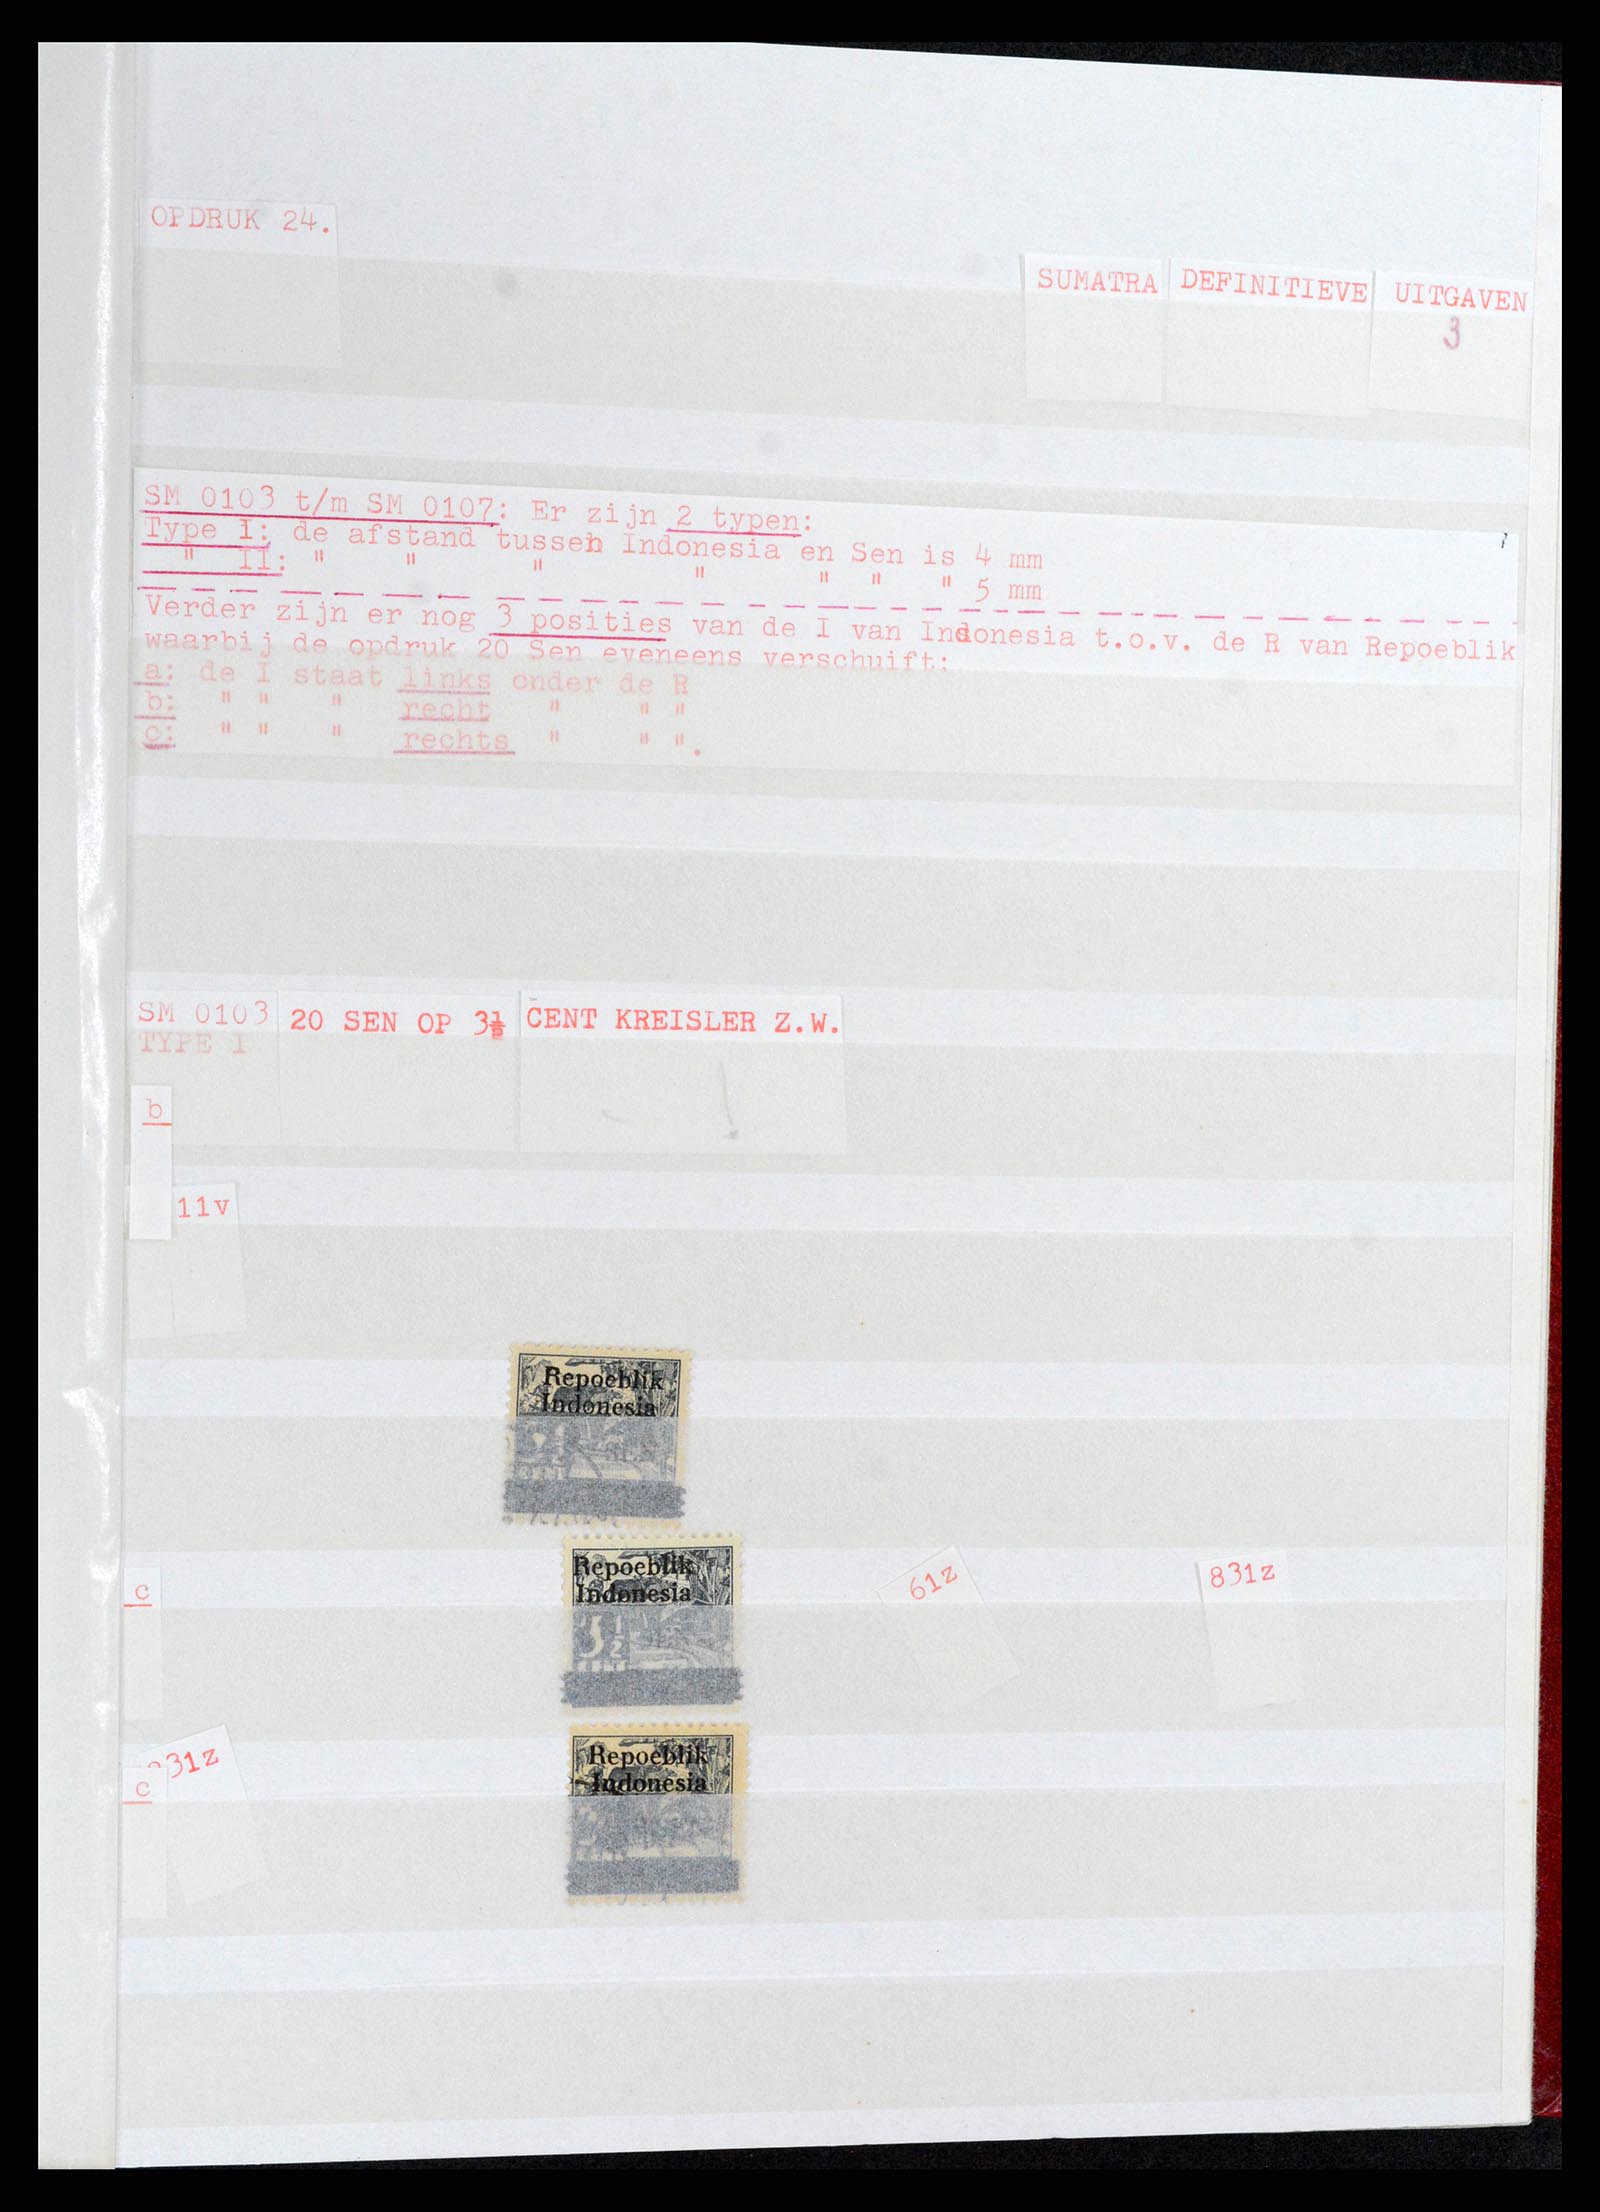 OPDRUK 24.
SUMATRA DEFINITIEVE UITGAVEN
3
SM 0103 t/m SM 0107: Er zijn 2 typen:
Type I: de afstand tussen Indonesia en Sen is 4 mm
" II: " " " " " " " 5 mm
Verder zijn er nog 3 posities van de I van Indonesia t.o.v. de R van Repoeblik
waarbij de opdruk 20 Sen eveneens verschuift:
a: de I staat links onder de R
b: " " " recht " " "
c: " " " rechts " " ".
SM 0103 20 SEN OP 3½ CENT KREISLER Z.W.
TYPE I
b
11v
Repoeblik
Indonesia
3½
CENT
Repoeblik
Indonesia
3½
CENT
c
61z
831z
Repoeblik
Indonesia
831z
c